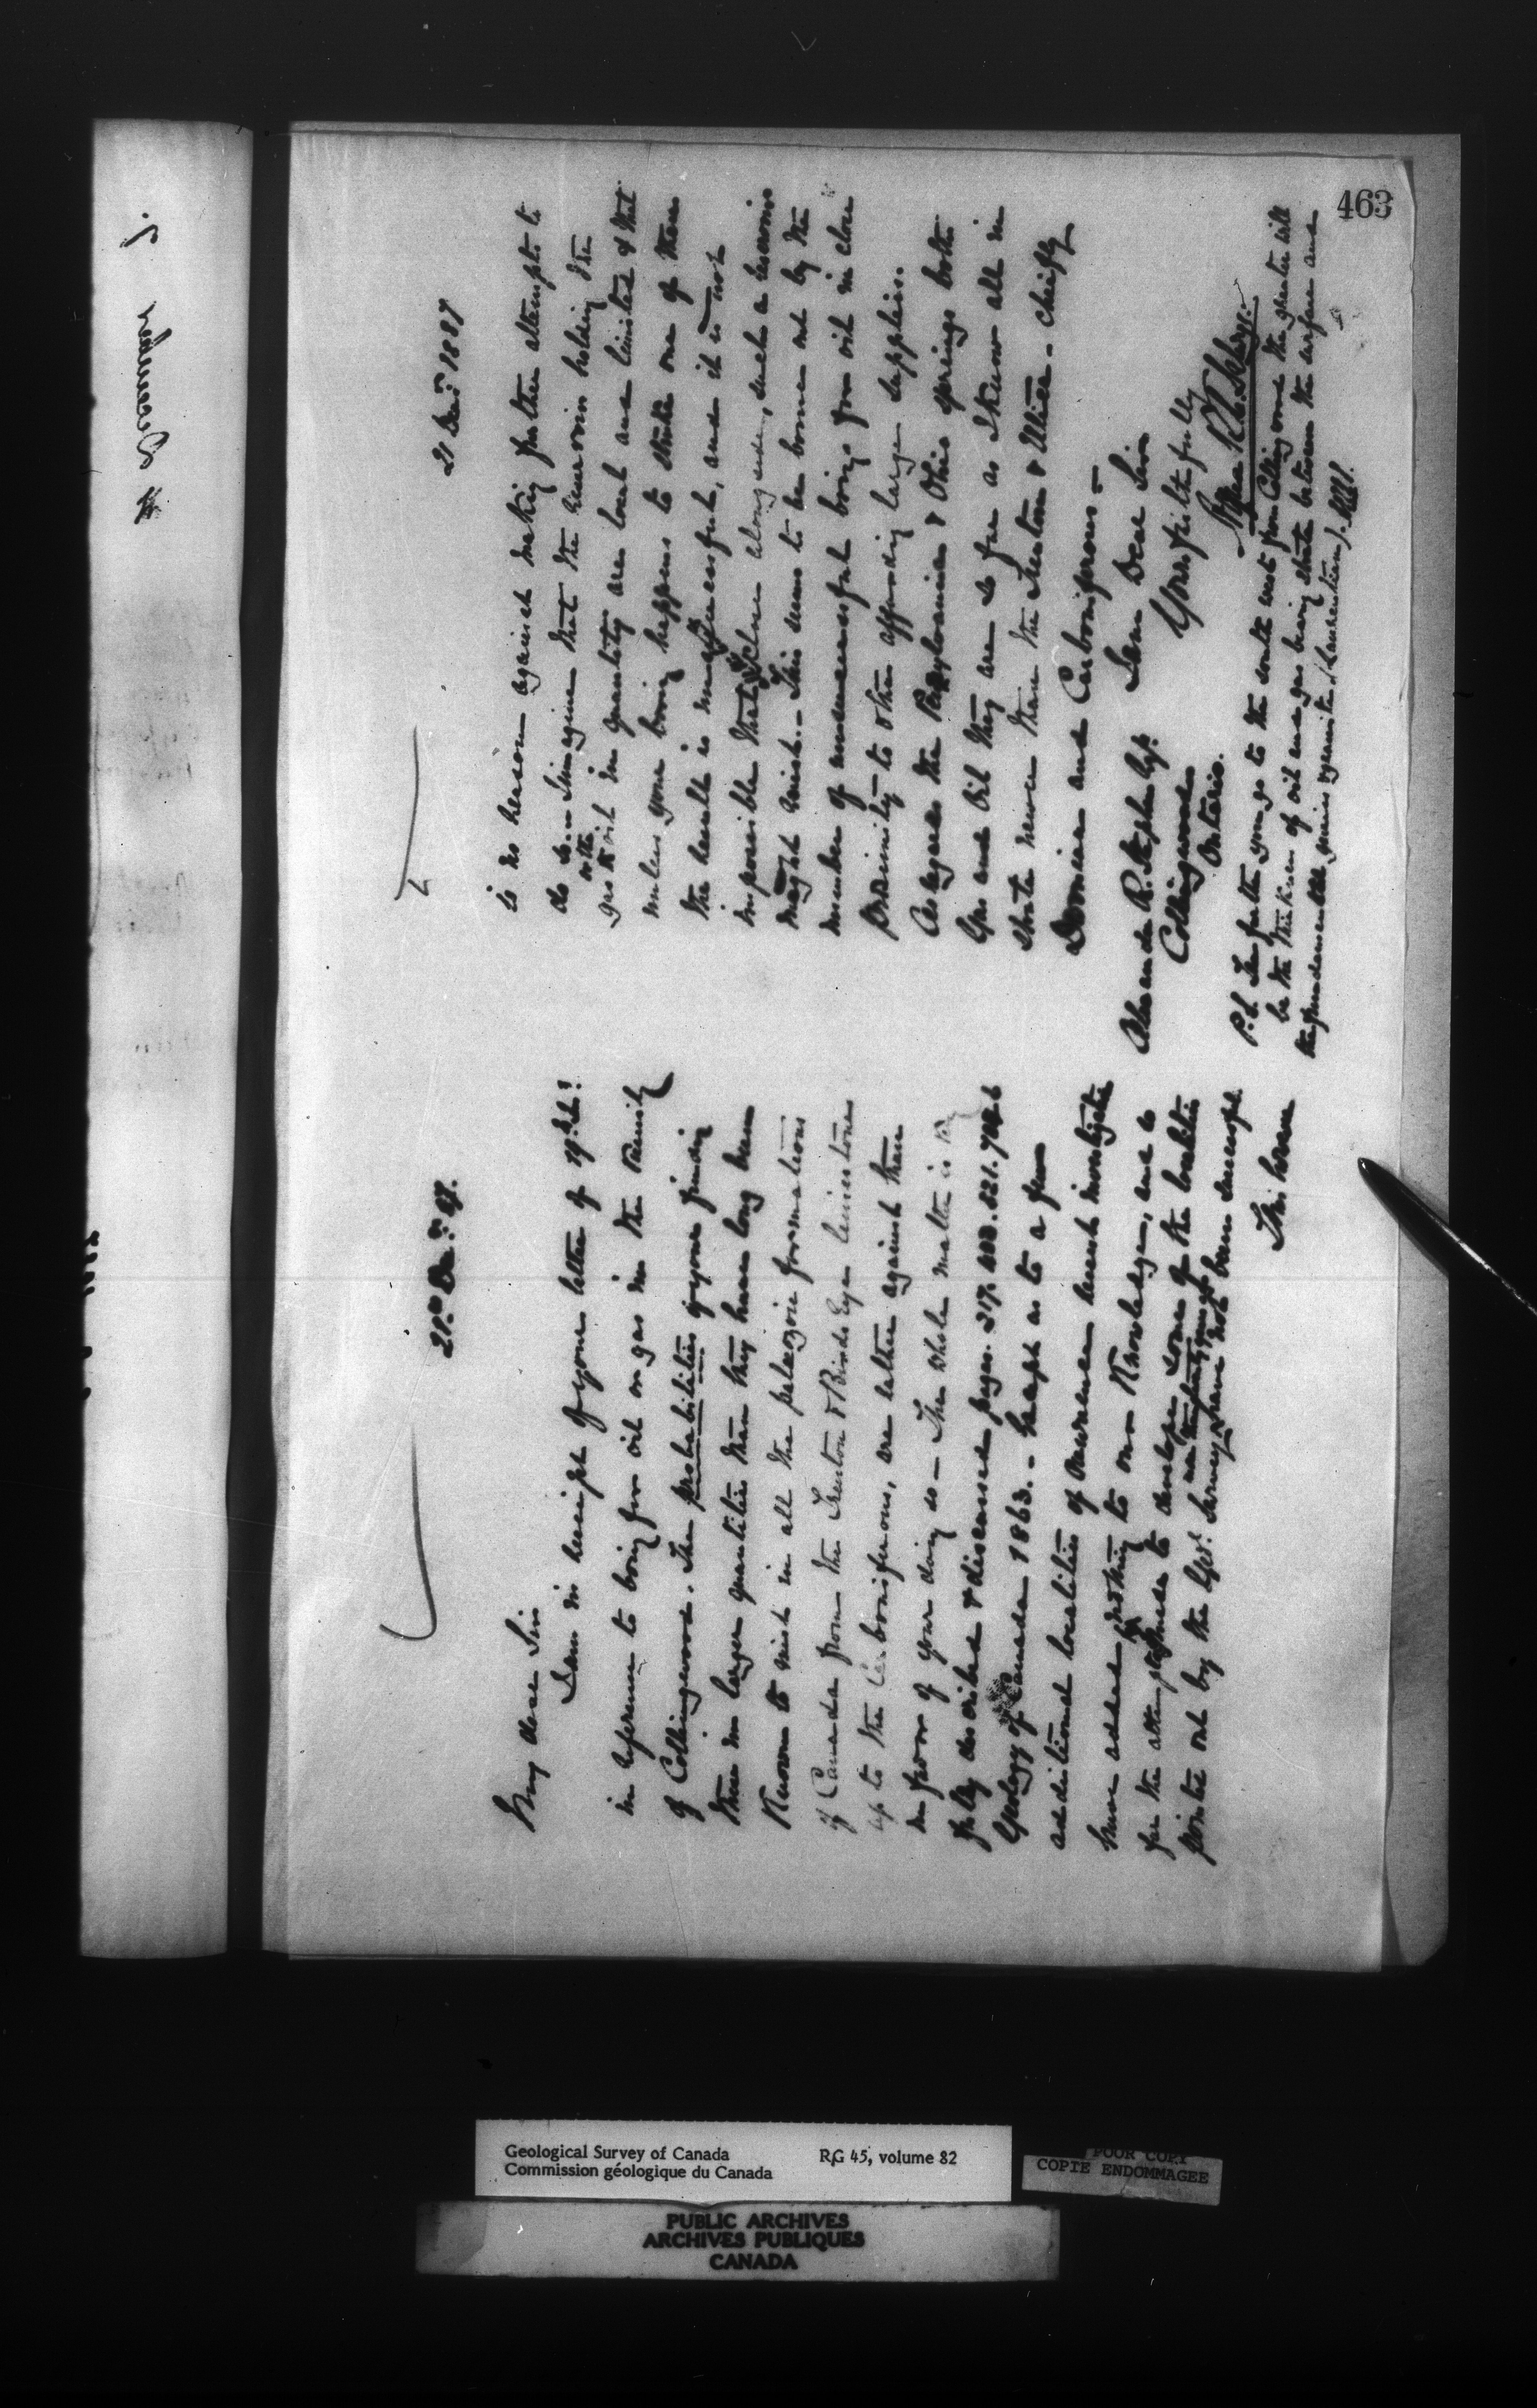 463
21st Decr. 87.
My dear Sir
I am in receipt of your letter of 19th inst:
in reference to boring for oil or gas in the vicinity
of Collingwood. The probabilities of your finding
these in larger quantities than they have long been
known to exist in all the palæozoic formations
of Canada from the Trenton & Birds Eye limestones
up to the Carboniferous, are rather against than
in favor of your doing so — The whole matter is
fully described & discussed pages. 217. 521.
Geology of Canada 1863. — Except as to a few
additional localities of occurrence recent investigations
have added nothing to our knowledge, and so
far the attempts made to develope some of the localities
pointed out by the Geol. Survey have not been successful
This however
21 Decr. 1887
is no reason against making further attempts to
do so. — I imagine that the reservoirs holding the
gas or the oil in quantity are local and limited & that
unless your boring happens to strike one of them
the result is unsuccessful, and it is not
impossible that close alongside, such a reservoir
might exist. — This seems to be borne out by the
number of unsuccessful borings for oil in close
proximity to others affording large supplies.
As regards the Pennsylvania & Ohio springs both
Gas and Oil they are so far as I know all in
strata newer than the Trenton & Utica — chiefly
Devonian and Carboniferous —
I am Dear Sir
Yours faithfully
Alfred R. C. Selwyn
Alexander R. Stephen Esq.
Collingwood
Ontario.
P.S. The further you go to the south west from Collingwood the greater will
be the thickness of oil and gas bearing strata between the surface and
the fundamental gneiss & granite (Laurentian).
Geological Survey of Canada
Commission géologique du Canada
RG 45, volume 82
POOR COPY
COPIE ENDOMMAGEE
PUBLIC ARCHIVES
ARCHIVES PUBLIQUES
CANADA